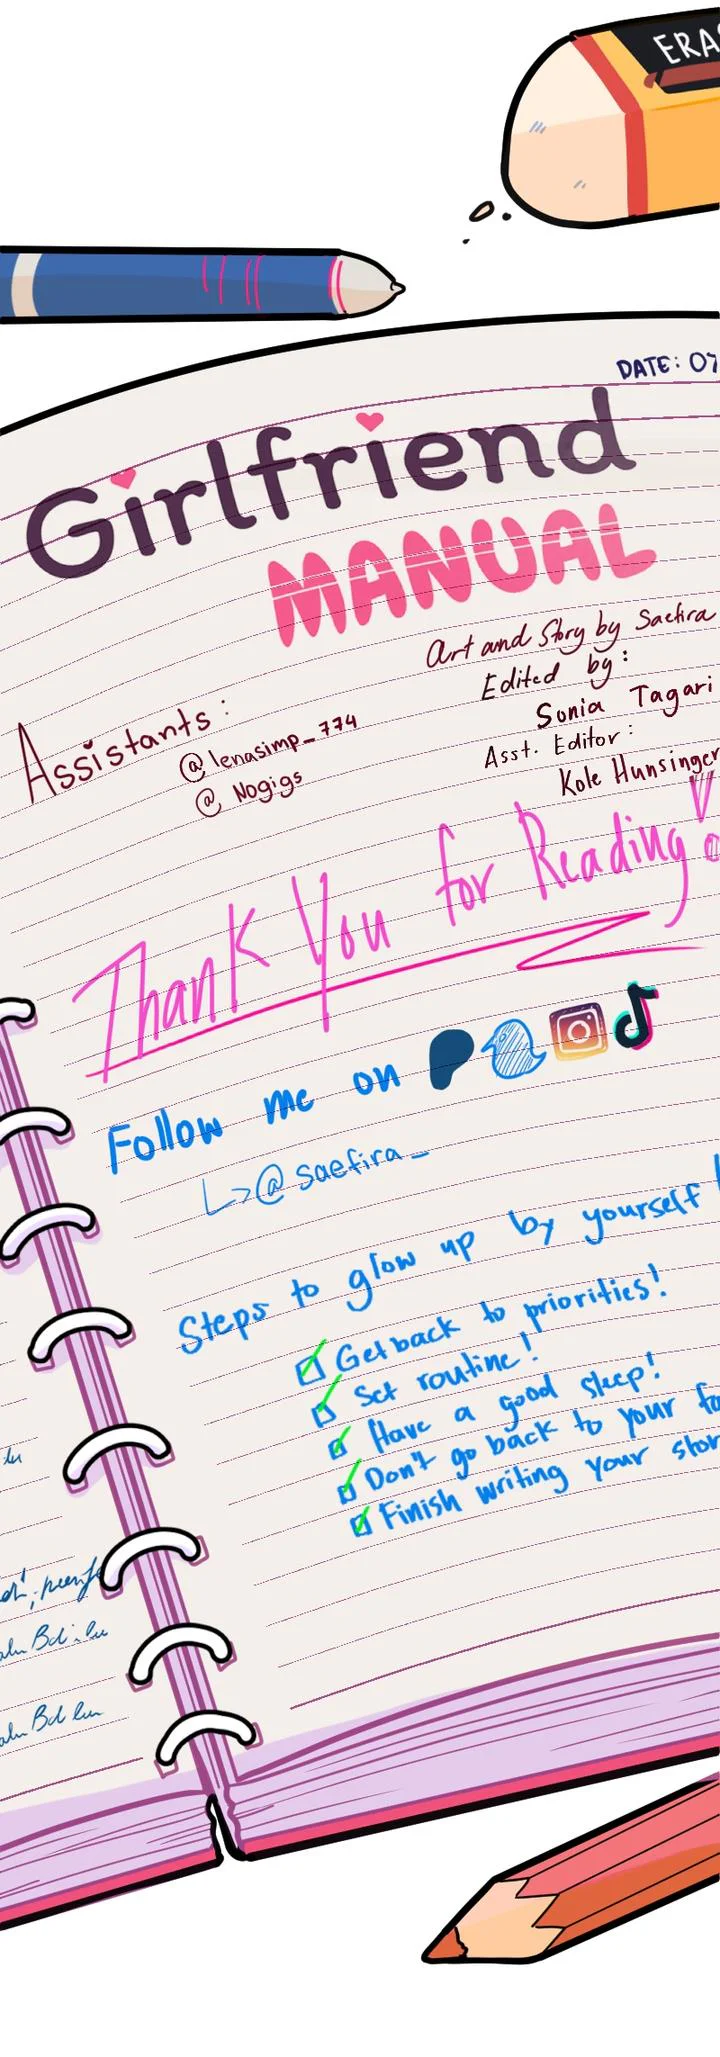 ERAS
DATE: 07
Girlfriend
MANUAL
Art and Story by Saefira
Edited by:
Sonia Tagari
Asst. Editor:
Kole Hunsinger
Assistants:
@lenasimp_774
@ Nogigs
Thank You for Reading
Follow me on
@saefira_
Steps to glow up by yourself
Get back to priorities!
Set routine!
Have a good sleep!
Don't go back to your
Finish writing your stor